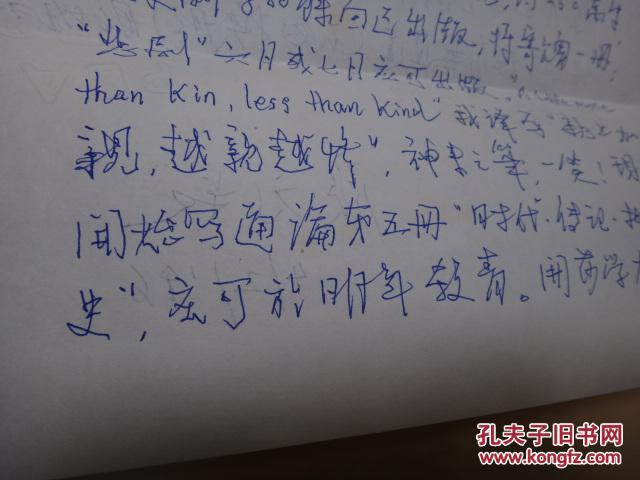 已出版,将寄赠一册;
"悲剧"六月或七月应可出版。"
than kin, less than kind" 我译为"亲上加
亲,越亲越",神来之笔,一笑!
开始写通论第五册"时代·传记·
史",应可于明年杀青。開前学
孔夫子旧书网
www.kongfz.com